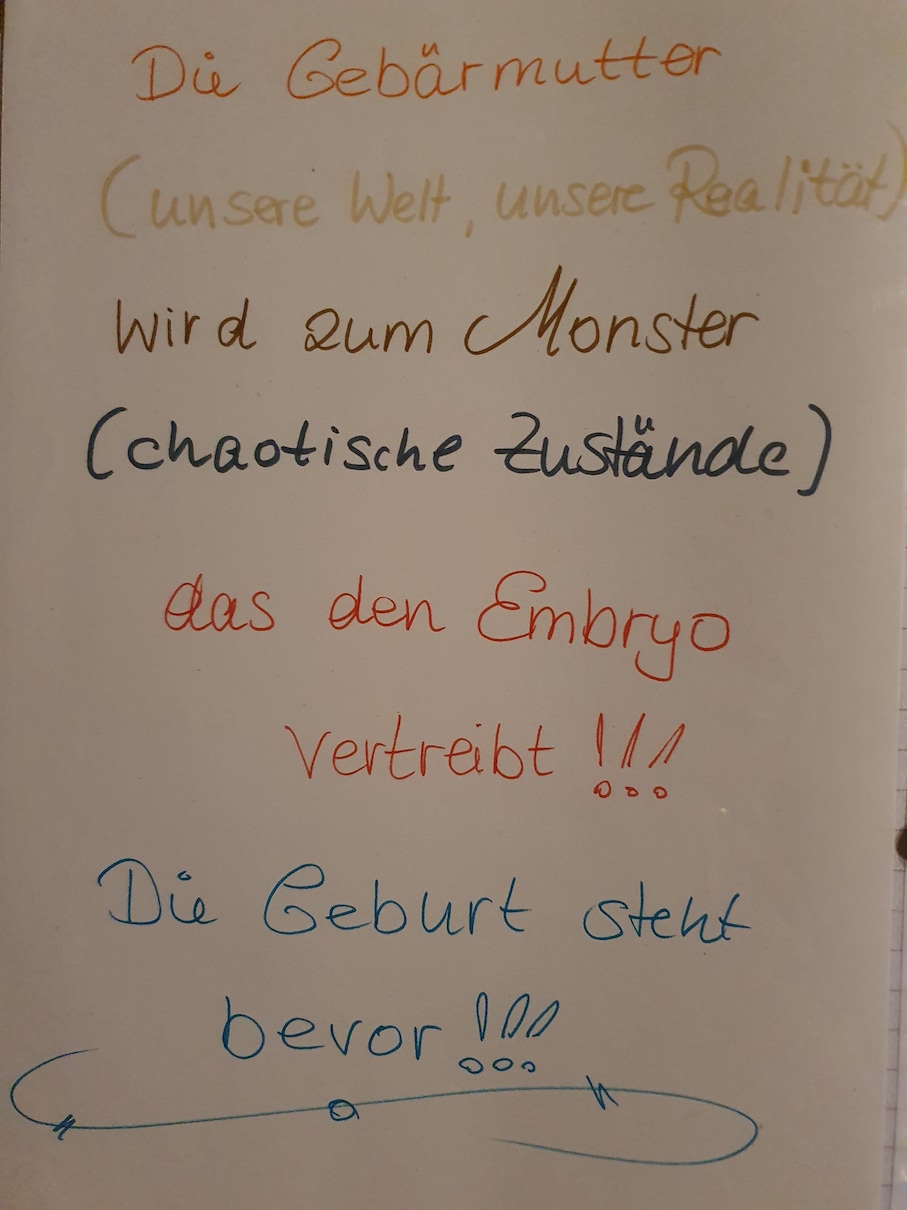 Die Gebärmutter
(unsere Welt, unsere Realität)
wird zum Monster
(chaotische Zustände)
das den Embryo
vertreibt !!!
Die Geburt steht
bevor !!!